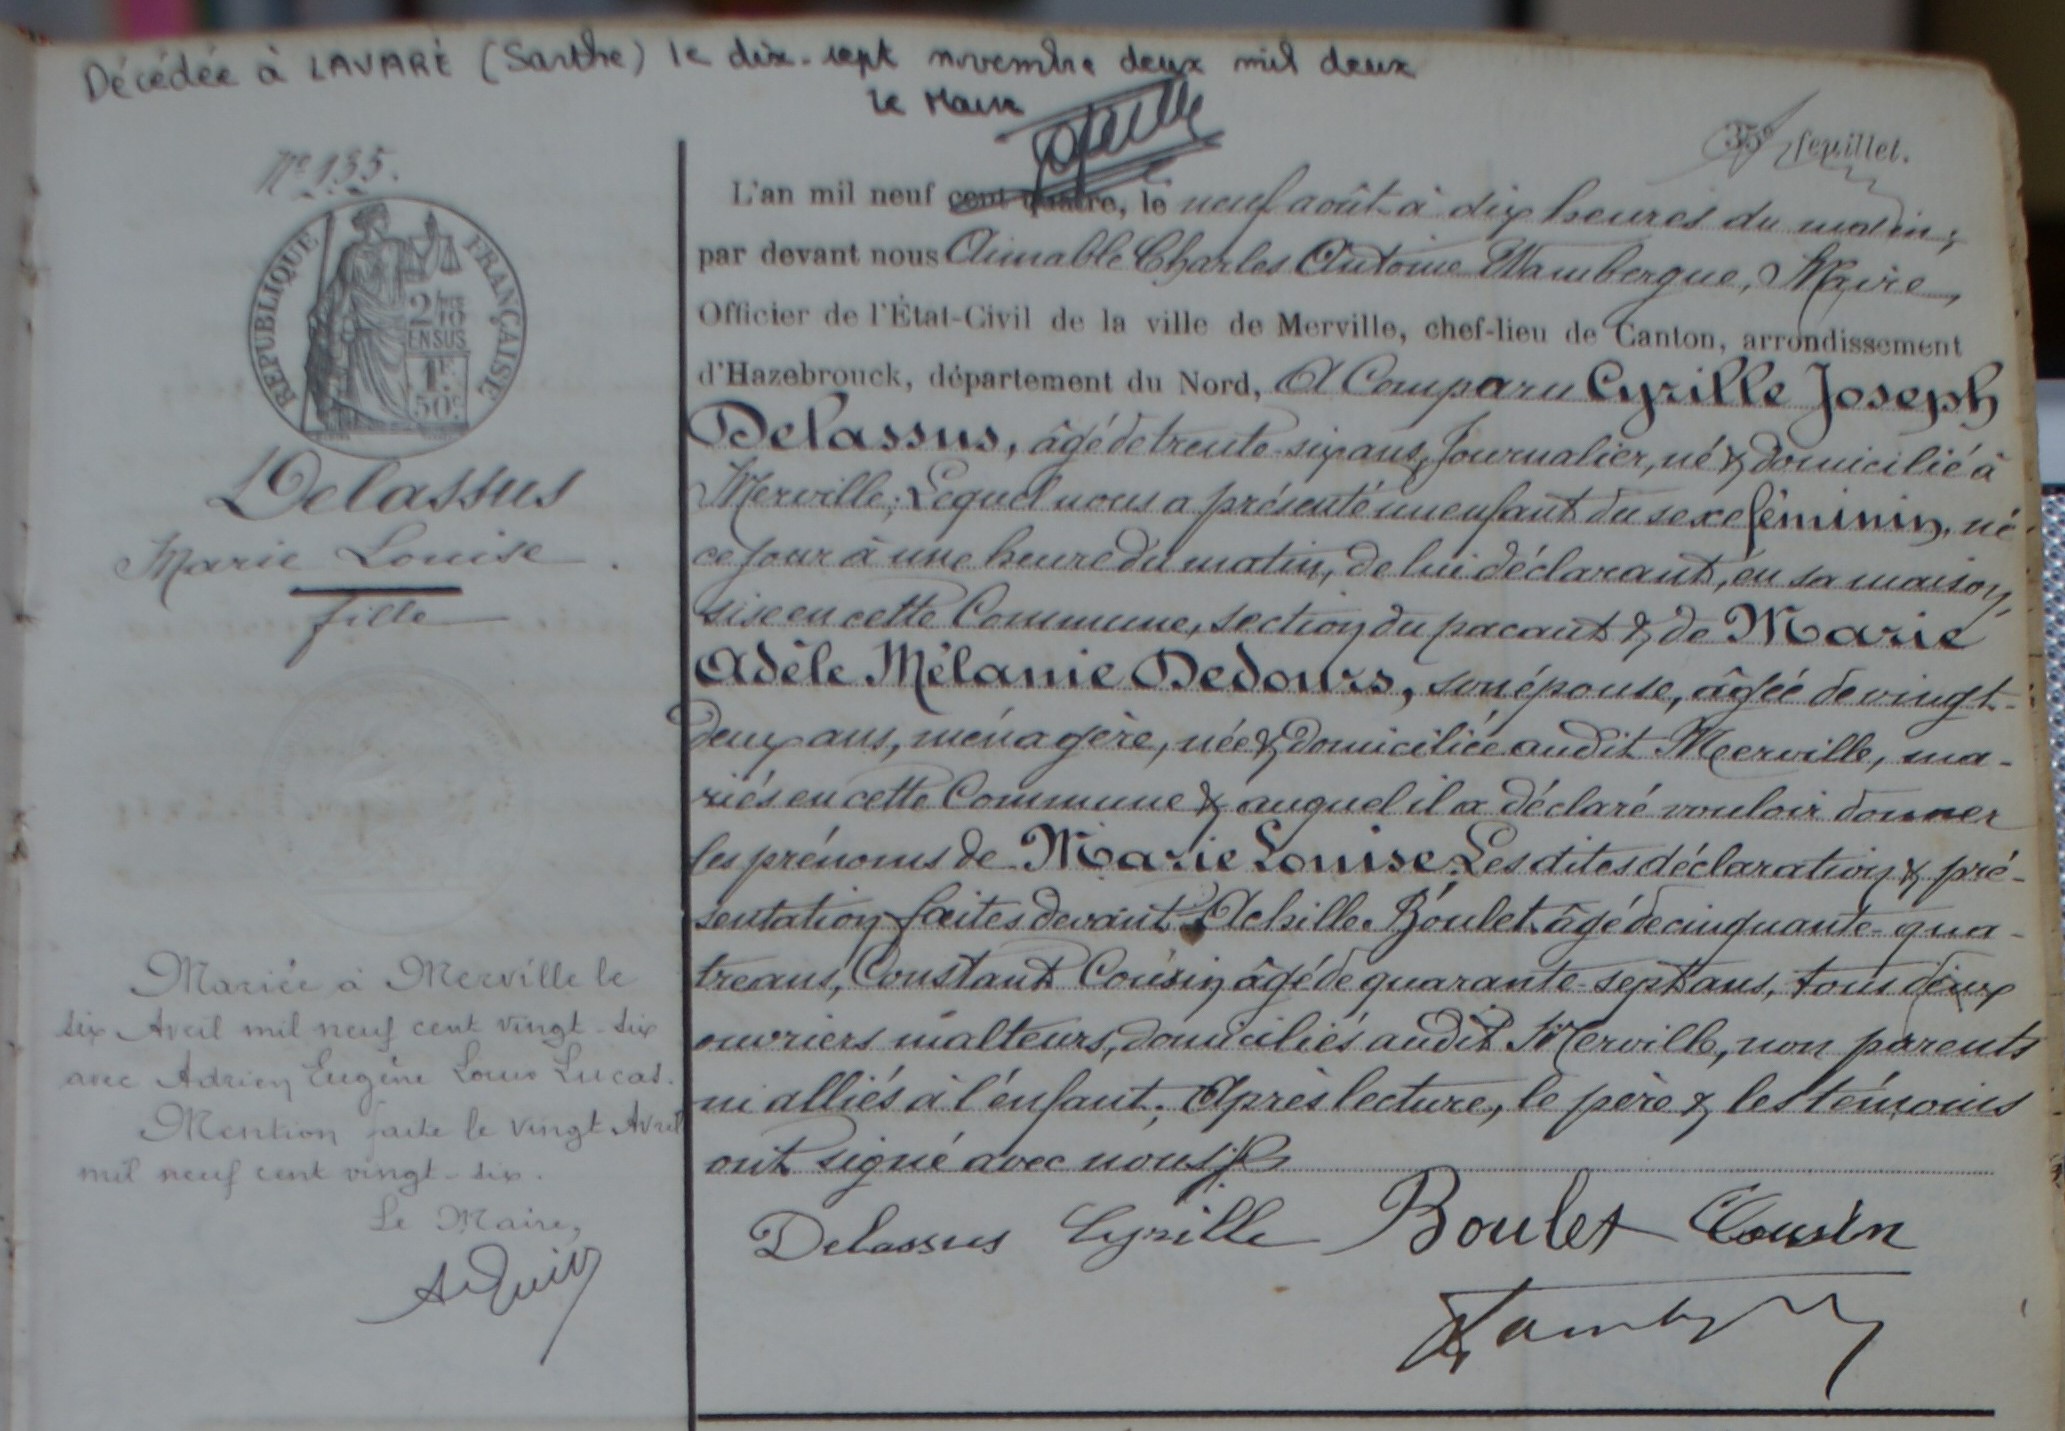 Décédée à LAVARÉ (Sarthe) le dix-sept novembre deux mil deux
le Maire
35e feuillet.
No 135.
RÉPUBLIQUE FRANÇAISE
2/10
EN SUS
1F
50c
Delassus
Marie Louise.
fille
Mariée à Merville le
six Avril mil neuf cent vingt-six
avec Adrien Eugène Louis Lucas.
Mention faite le vingt Avril
mil neuf cent vingt-six.
Le Maire,
L'an mil neuf cent quatre, le neuf août à dix heures du matin,
par devant nous Aimable Charles Antoine Wambergue, Maire,
Officier de l'État-Civil de la ville de Merville, chef-lieu de Canton, arrondissement
d'Hazebrouck, département du Nord, A Comparu Cyrille Joseph
Delassus, âgé de trente-six ans, Journalier, né & domicilié à
Merville; Lequel nous a présenté un enfant du sexe féminin, né
ce jour à une heure du matin, de lui déclarant, en sa maison,
sise en cette Commune, section du pacaut & de Marie
Adèle Mélanie Dedours, son épouse, âgée de vingt-
deux ans, ménagère, née & domiciliée audit Merville, ma-
riés en cette Commune & auquel il a déclaré vouloir donner
les prénoms de Marie Louise. Les dites déclaration & pré-
sentation faites devant Achille Boulet âgé de cinquante-qua-
tre ans, Constant Cousin âgé de quarante-sept ans, tous deux
ouvriers malteurs, domiciliés audit Merville, non parents
ni alliés à l'enfant; Après lecture, le père & les témoins
ont signé avec nous
Delassus Cyrille Boulet Cousin